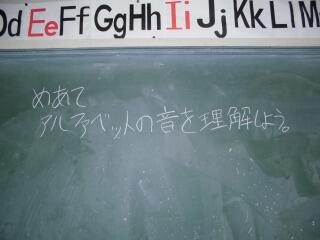 Dd Ee Ff Gg Hh Ii Jj Kk Ll M
めあて
アルファベットの音を理解しよう。